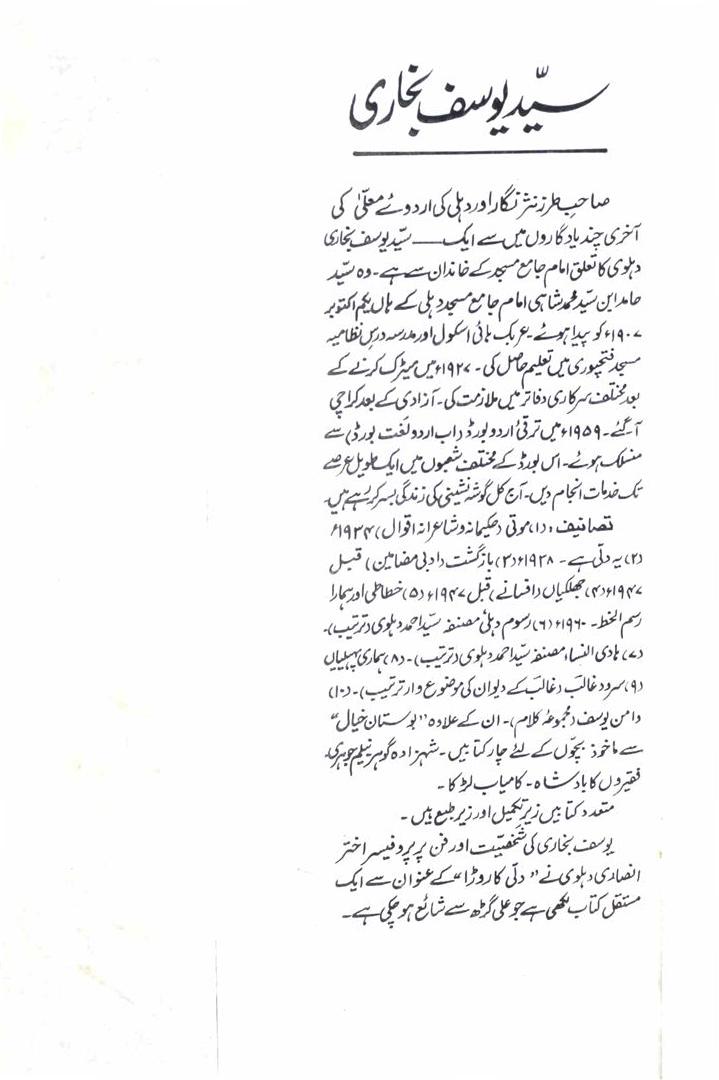 سیّد یوسف بخاری
صاحبِ طرز نثر نگار اور دہلی کی اردوئے معلّٰی کی
آخری چند یادگاروں میں سے ایک —— سیّد یوسف بخاری
دہلوی کا تعلق امام جامع مسجد کے خاندان سے ہے۔ وہ سیّد
حامد ابن سیّد محمد شاہی امام جامع مسجد دہلی کے ہاں یکم اکتوبر
۱۹۰۷ء کو پیدا ہوئے۔ عربک ہائی اسکول اور مدرسہ درس نظامیہ
مسجد فتحپوری میں تعلیم حاصل کی۔ ۱۹۲۷ء میں میٹرک کرنے کے
بعد مختلف سرکاری دفاتر میں ملازمت کی۔ آزادی کے بعد کراچی
آگئے۔ ۱۹۵۹ء میں ترقیٔ اردو بورڈ (اب اردو لغت بورڈ) سے
منسلک ہوئے۔ اس بورڈ کے مختلف شعبوں میں ایک طویل عرصے
تک خدمات انجام دیں۔ آج کل گوشہ نشینی کی زندگی بسر کر رہے ہیں۔
تصانیف: (۱) موتی (حکیمانہ و شاعرانہ اقوال) ۱۹۳۴ء
(۲) یہ دلّی ہے۔ ۱۹۳۸ء (۳) بازگشت (ادبی مضامین) قبل
۱۹۴۷ء (۴) جھلکیاں (افسانے) قبل ۱۹۴۷ء (۵) خطاطی اور ہمارا
رسم الخط۔ ۱۹۶۰ء (۶) رسوم دہلی مصنفہ سیّد احمد دہلوی (ترتیب)۔
(۷) ہادی النساء مصنفہ سیّد احمد دہلوی (ترتیب)۔ (۸) ہماری پہیلیاں
(۹) سرود غالب (غالب کے دیوان کی موضوع وار ترتیب)۔ (۱۰)
دامن یوسف (مجموعۂ کلام)۔ ان کے علاوہ "بوستان خیال"
سے ماخوذ بچّوں کے لئے چار کتابیں۔ شہزادہ گوہر۔ نیلم جوہری۔
فقیروں کا بادشاہ۔ کامیاب لڑکا۔
متعدد کتابیں زیر تکمیل اور زیر طبع ہیں۔
یوسف بخاری کی شخصیت اور فن پر پروفیسر اختر
انصاری دہلوی نے "دلّی کا روڑا" کے عنوان سے ایک
مستقل کتاب لکھی ہے جو علی گڑھ سے شائع ہو چکی ہے۔